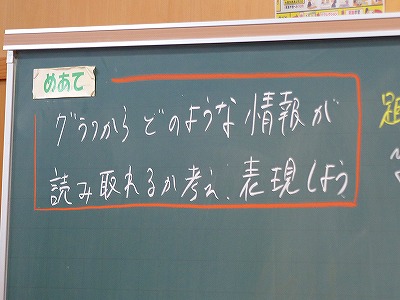 めあて
グラフから どのような情報が
読み取れるか考え、表現しよう